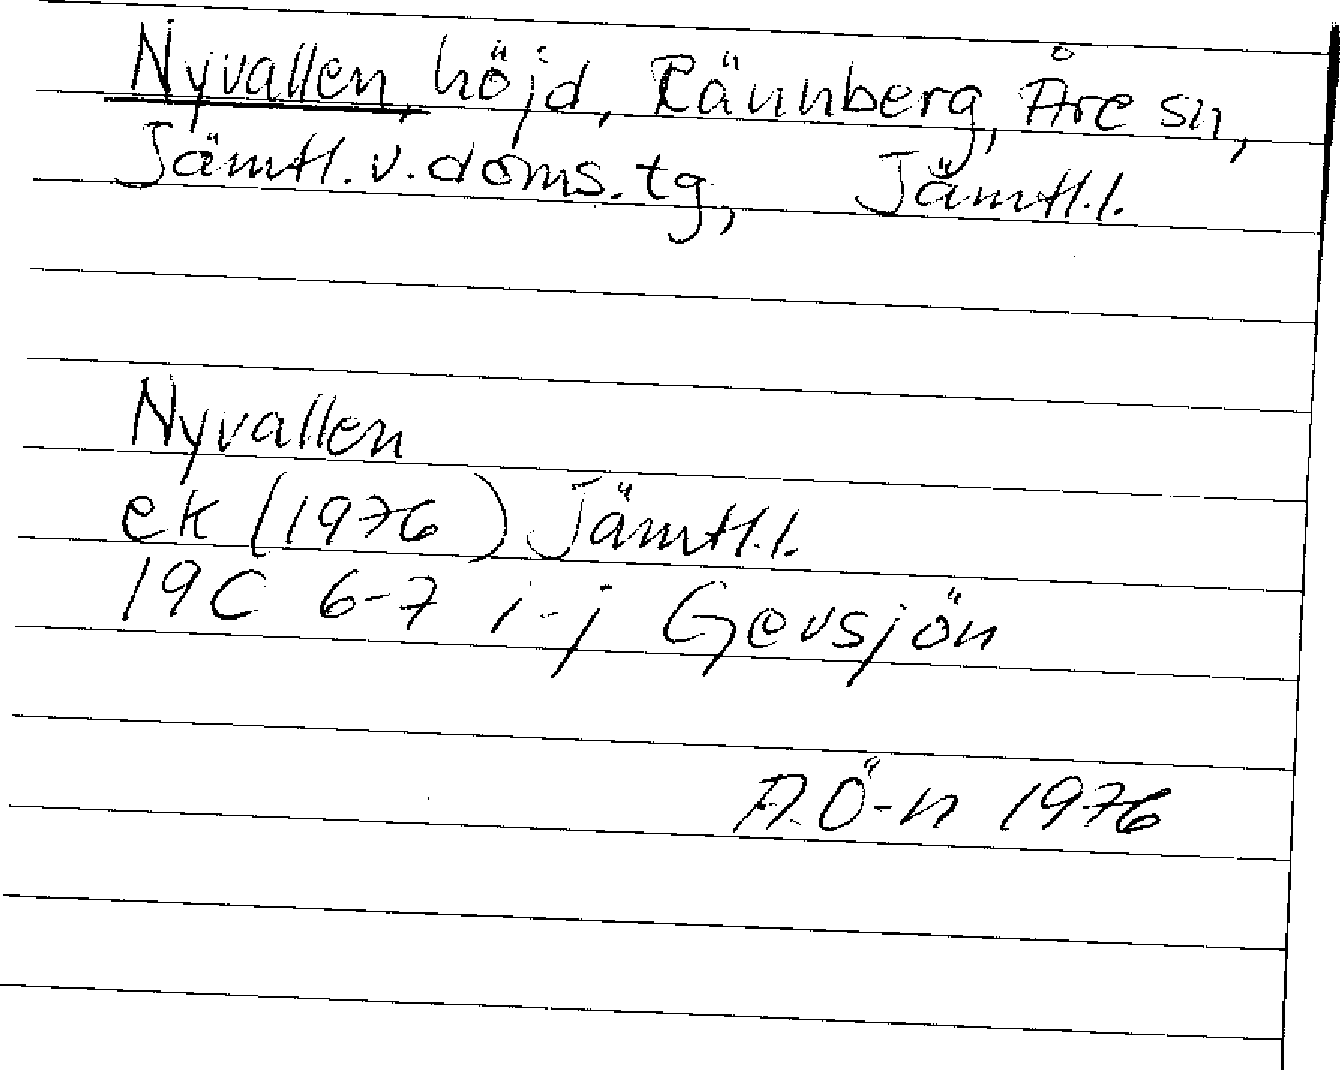 Nyvallen, höjd, Rännberg, Åre sn,
Jämtl. v. doms. tg, Jämtl.l.
Nyvallen
ek (1976) Jämtl.l.
19C 6-7 i-j Gevsjön
A.Ö-n 1976